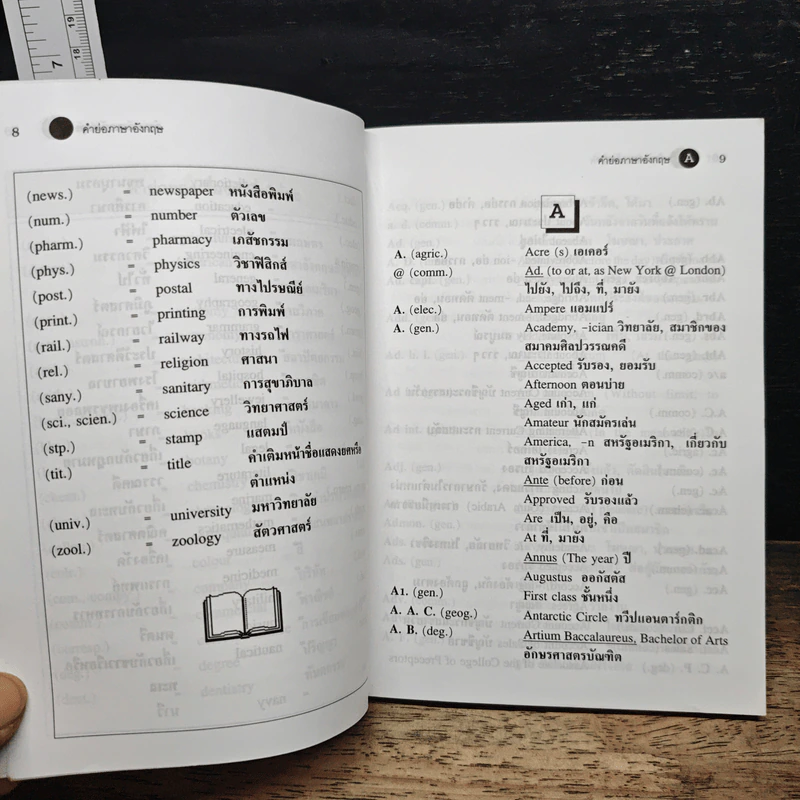 8 คำย่อภาษาอังกฤษ
(news.) = newspaper หนังสือพิมพ์
(num.) = number ตัวเลข
(pharm.) = pharmacy เภสัชกรรม
(phys.) = physics วิชาฟิสิกส์
(post.) = postal ทางไปรษณีย์
(print.) = printing การพิมพ์
(rail.) = railway ทางรถไฟ
(rel.) = religion ศาสนา
(sany.) = sanitary การสุขาภิบาล
(sci., scien.) = science วิทยาศาสตร์
(stp.) = stamp แสตมป์
(tit.) = title คำเติมหน้าชื่อแสดงยศหรือ
ตำแหน่ง
(univ.) = university มหาวิทยาลัย
(zool.) = zoology สัตวศาสตร์
คำย่อภาษาอังกฤษ A 9
A
A. (agric.) Acre (s) เอเคอร์
@ (comm.) Ad. (to or at, as New York @ London)
ไปยัง, ไปถึง, ที่, มายัง
A. (elec.) Ampere แอมแปร์
A. (gen.) Academy, -ician วิทยาลัย, สมาชิกของ
สมาคมศิลปวรรณคดี
Accepted รับรอง, ยอมรับ
Afternoon ตอนบ่าย
Aged เก่า, แก่
Amateur นักสมัครเล่น
America, -n สหรัฐอเมริกา, เกี่ยวกับ
สหรัฐอเมริกา
Ante (before) ก่อน
Approved รับรองแล้ว
Are เป็น, อยู่, คือ
At ที่, มายัง
Annus (The year) ปี
Augustus ออกัสตัส
A1. (gen.) First class ชั้นหนึ่ง
A. A. C. (geog.) Antarctic Circle ทวีปแอนตาร์กติก
A. B. (deg.) Artium Baccalaureus, Bachelor of Arts
อักษรศาสตรบัณฑิต
7
18
19